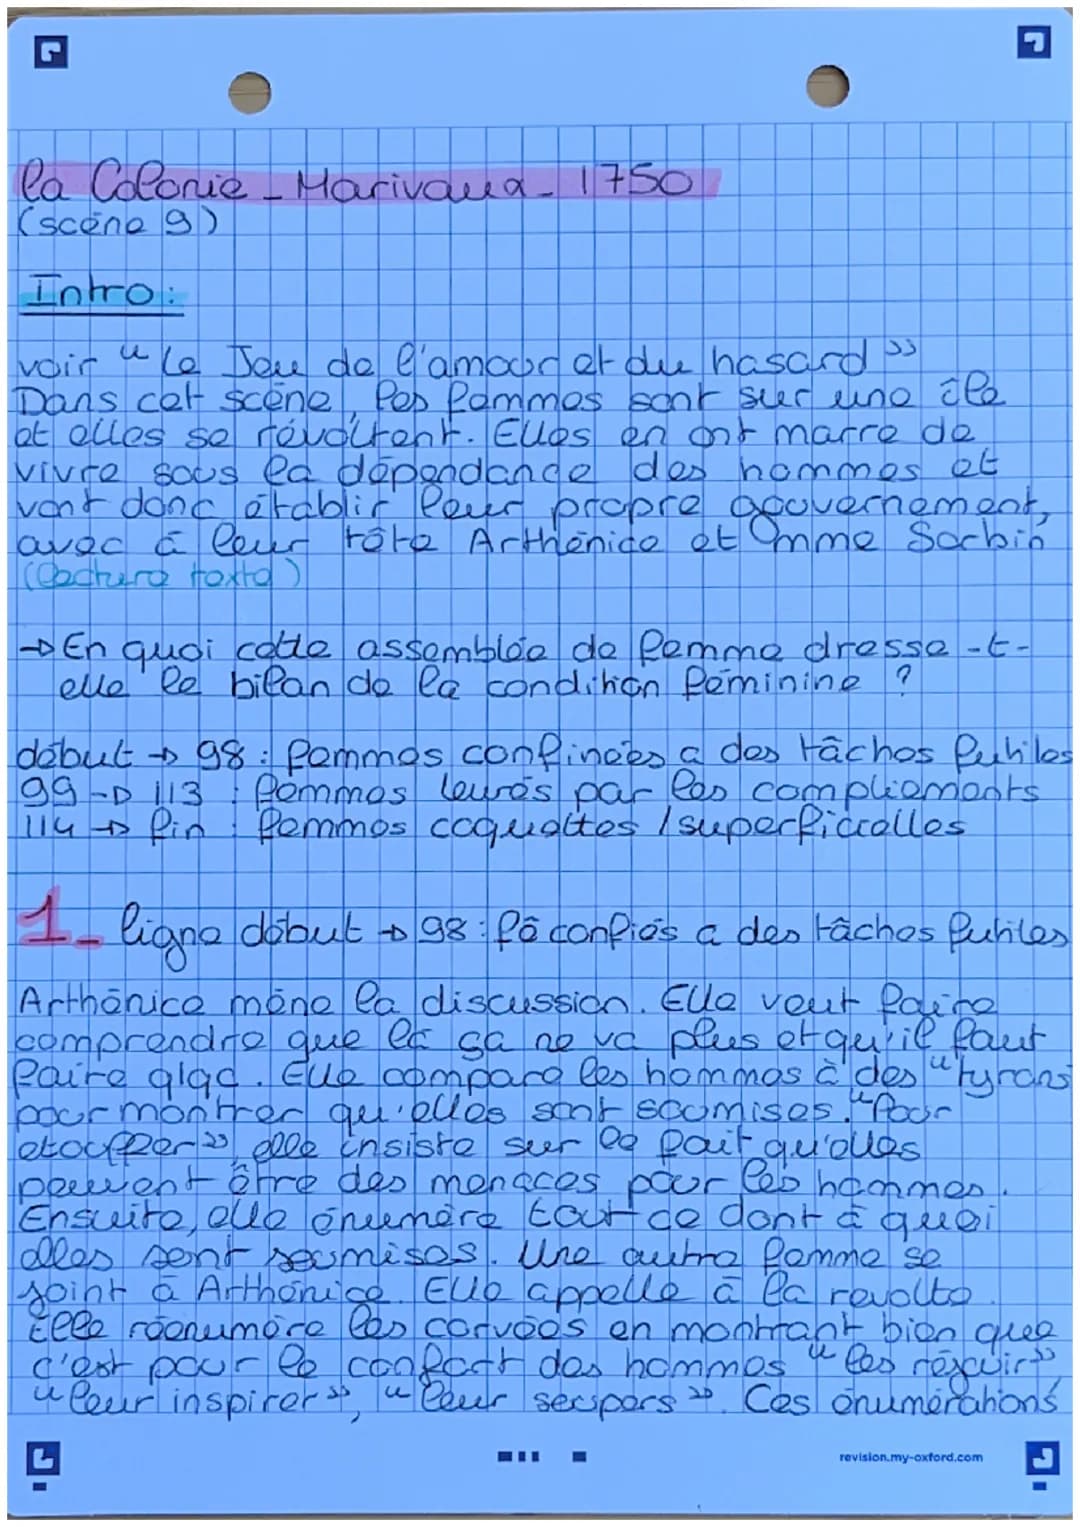 la Colonie - Marivaux - 1750
(scène 9)
Intro :
voir " le Jeu de l'amour et du hasard "
Dans cet scène, les femmes sont sur une île
et elles se révoltent. Elles en ont marre de
vivre sous la dépendance des hommes et
vont donc établir leur propre gouvernement,
avec à leur tête Arthénice et mme Sorbin
(lecture texte)
→ En quoi cette assemblée de femme dresse-t-
elle le bilan de la condition féminine ?
début → 98 : femmes confinées a des tâches futiles
99 → 113 : femmes leurés par les compliements
114 → fin : femmes coquettes / superficielles
1_ ligne début → 98 : fê confiés a des tâches futiles
Arthénice mène la discussion. Elle veut faire
comprendre que là ça ne va plus et qu'il faut
faire qlqc. Elle compare les hommes à des "tyrans"
pour montrer qu'elles sont soumises. "Pour
etouffer", elle insiste sur le fait qu'elles
peuvent être des menaces pour les hommes.
Ensuite, elle énumère tout ce dont à quoi
elles sont soumises. Une autre femme se
joint à Arthénice. Elle appelle à la revolte.
Elle réenumère les corvées en montrant bien que
c'est pour le confort des hommes "les réjouir"
"leur inspirer", "leur soupers". Ces énumérations
revision.my-oxford.com